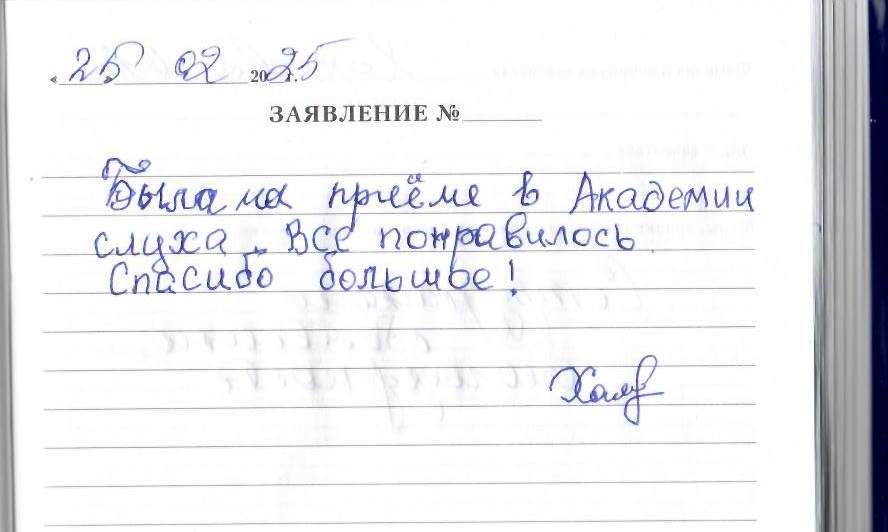 « 25 » 02 2025 г.
ЗАЯВЛЕНИЕ №
Была на приёме в Академии
слуха. Все понравилось
Спасибо большое!